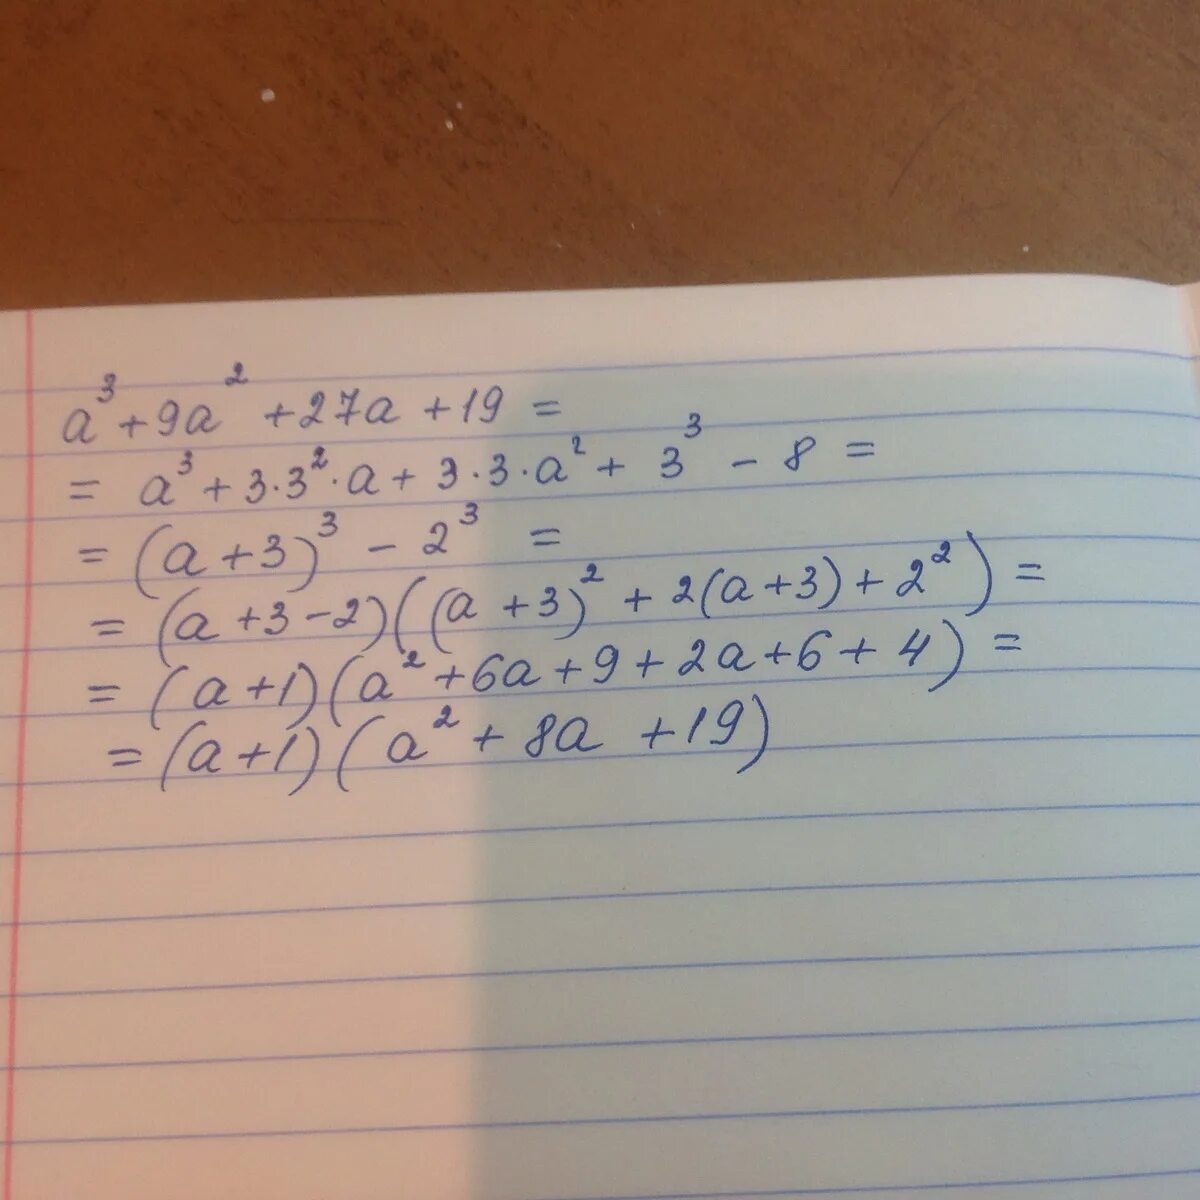 a³ + 9a² + 27a + 19 =
= a³ + 3·3²·a + 3·3·a² + 3³ - 8 =
= (a + 3)³ - 2³ =
= (a + 3 - 2)((a + 3)² + 2(a + 3) + 2²) =
= (a + 1)(a² + 6a + 9 + 2a + 6 + 4) =
= (a + 1)(a² + 8a + 19)